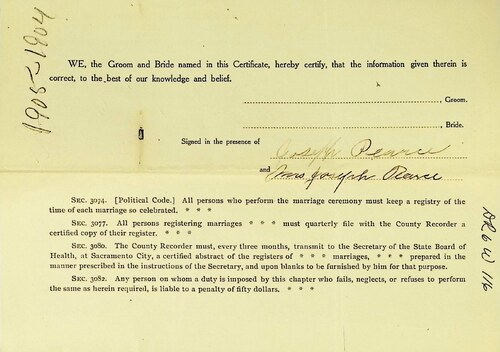 1905-1904
WE, the Groom and Bride named in this Certificate, hereby certify, that the information given therein is
correct, to the best of our knowledge and belief.
, Groom.
, Bride.
Signed in the presence of Joseph Pearce
and Mrs Joseph Pearce
SEC. 3074. [Political Code.] All persons who perform the marriage ceremony must keep a registry of
the time of each marriage so celebrated. * * *
SEC. 3077. All persons registering marriages * * * must quarterly file with the County Recorder a
certified copy of their register. * * *
SEC. 3080. The County Recorder must, every three months, transmit to the Secretary of the State Board of
Health, at Sacramento City, a certified abstract of the registers of * * * marriages, * * * prepared in the
manner prescribed in the instructions of the Secretary, and upon blanks to be furnished by him for that purpose.
SEC. 3082. Any person on whom a duty is imposed by this chapter who fails, neglects, or refuses to perform
the same as herein required, is liable to a penalty of fifty dollars. * * *
116